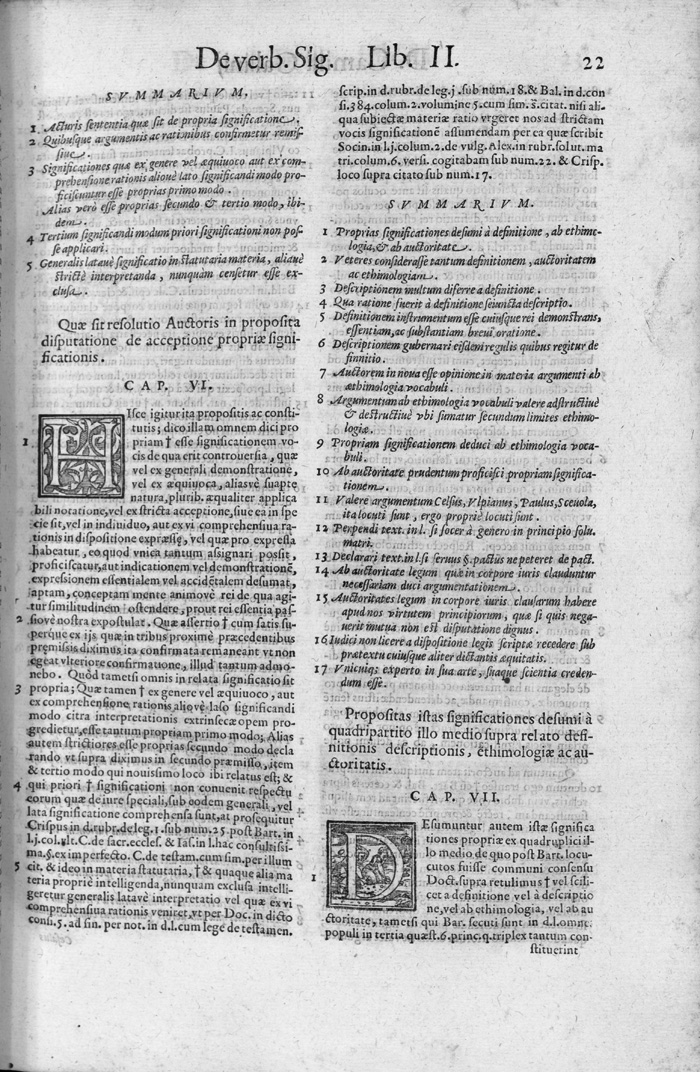 De verb. Sig. Lib. II. 22
SVMMARIVM.
1 Acturis sententia quæ sit de propria significatione.
2 Quibusque argumentis ac rationibus confirmetur remis
siue.
3 Significationes quæ ex genere vel æquiuoco aut ex com
prehensione rationis alioue lato significandi modo pro-
ficiscuntur esse proprias primo modo.
Alias verò esse proprias secundo & tertio modo, ibi-
dem.
4 Tertium significandi modum priori significationi non pos-
se applicari.
5 Generalis lataue significatio in statutaria materia, aliaue
strictè interpretanda, nunquam censetur esse ex-
clusa.
Quæ sit resolutio Auctoris in proposita
disputatione de acceptione propriæ signi-
ficationis.
CAP. VI.
HIsce igitur ita propositis ac consti-
tutis; dico illam omnem dici pro
1 priam † esse significationem vo-
cis de qua erit controuersia, quæ
vel ex generali demonstratione,
vel ex æquiuoca, aliasvè suapte
natura, plurib. æqualiter applica
bili notatione, vel ex stricta acceptione, siue ea in spe
cie sit, vel in indiuiduo, aut ex vi comprehensiua ra-
tionis in dispositione expræssę, vel quæ pro expressa
habeatur, eo quod vnica tantum assignari possit,
proficiscatur, aut indicationem vel demonstrationē,
expressionem essentialem vel accidētalem desumat,
aptam, conceptam mente animovè rei de qua agi-
tur similitudinem ostendere, prout rei essentia pas-
2 siovè nostra expostulat. Quæ assertio † cum satis su-
perque ex ijs, quæ in tribus proximè præcedentibus
premissis diximus ita confirmata remaneat vt non
egeat vlteriore confirmatione, illud tantum admo-
nebo. Quòd tametsi omnis in relata significatio sit
3 propria; Quæ tamen † ex genere vel æquiuoco, aut
ex comprehensione rationis aliovè laso significandi
modo citra interpretationis extrinsecæ opem pro-
gredietur, esse tantum propriam primo modo; Alias
autem strictiores esse proprias secundo modo decla
rando vt supra diximus in secundo præmisso, item
& tertio modo qui nouissimo loco ibi relatus est; &
4 qui priori † significationi non conuenit respectu
eorum quæ de iure speciali, sub eodem generali, vel
lata significatione comprehensa sunt, at prosequitur
Crispus in d. rubr. de leg. 1. sub num. 25. post Bart. in
l.j. col. vlt. C. de sacr. eccles. & Ias. in l. hac consultissi-
ma. §. ex imperfecto. C. de testam. cum sim. per illum
5 cit. & ideo in materia statutaria, † & quaque alia ma
teria propriè intelligenda, nunquam exclusa intelli-
geretur generalis lataué interpretatio vel quæ ex vi
comprehensiua rationis veniret, vt per Doc. in dicto
consi. 5. ad fin. per not. in d. l. cum lege de testamen.
scrip. in d. rubr. de leg. j. sub num. 18. & Bal. in d. con
si. 384. colum. 2. volumine 5. cum sim. s. citat. nisi ali-
qua subiectæ materiæ ratio vrgeret nos ad strictam
vocis significationē assumendam per ea quæ scribit
Socin. in l.j. colum. 2. de vulg. Alex. in rubr. solut. ma
tri. colum. 6. versi. cogitabam sub num. 22. & Crisp.
loco supra citato sub num. 17.
SVMMARIVM.
1 Proprias significationes desumi à definitione, ab ethimo-
logia, & ab auctoritate.
2 Veteres considerasse tantum definitionem, auctoritatem
ac ethimologiam.
3 Descriptionem multum diferre a definitione.
4 Qua ratione fuerit à definitione seiuncta descriptio.
5 Definitionem instrumentum esse cuiusque rei demonstrans,
essentiam, ac substantiam breui oratione.
6 Descriptionem gubernari eisdem regulis quibus regitur de
finnitio.
7 Auctorem in noua esse opinione in materia argumenti ab
æthimologia vocabuli.
8 Argumentum ab ethimologia vocabuli valere adstructiuè
& destructiuè vbi sumatur secundum limites ethimo-
logiæ.
9 Propriam significationem deduci ab ethimologia voca-
buli.
10 Ab auctoritate prudentum proficisci propriam significa-
tionem.
11 Valere argumentum Celsus, Vlpianus, Paulus, Sceuola,
ita locuti sunt, ergo propriè locuti sunt.
12 Perpendi text. in l. si socer à genero in principio solu.
matri.
13 Declarari text. in l. si seruus §. pactus ne peteret de pact.
14 Ab auctoritate legum quæ in corpore iuris clauduntur
necessariam duci argumentationem.
15 Auctoritates legum in corpore iuris clausarum habere
apud nos virtutem principiorum, quæ si quis nega-
uerit mutua non est disputatione dignus.
16 Iudici non licere a dispositione legis scriptæ recedere sub
prætextu cuiusque aliter dictantis æquitatis.
17 Vnicuiq; experto in sua arte, suaque scientia creden-
dum esse.
Propositas istas significationes desumi à
quadripartito illo medio supra relato defi-
nitionis descriptionis, ethimologiæ ac au-
ctoritatis.
CAP. VII.
DEsumuntur autem istæ significa
tiones propriæ ex quadruplici il-
lo medio de quo post Bart. locu-
cutos fuisse communi consensu
1 Doct. supra retulimus † vel scili-
cet a definitione vel à descriptio
ne, vel ab ethimologia, vel ab au
ctoritate, tametsi qui Bar. secuti sunt in d. l. omne
populi in tertia quæst. 6. princ. q. triplex tantum con-
stituerint